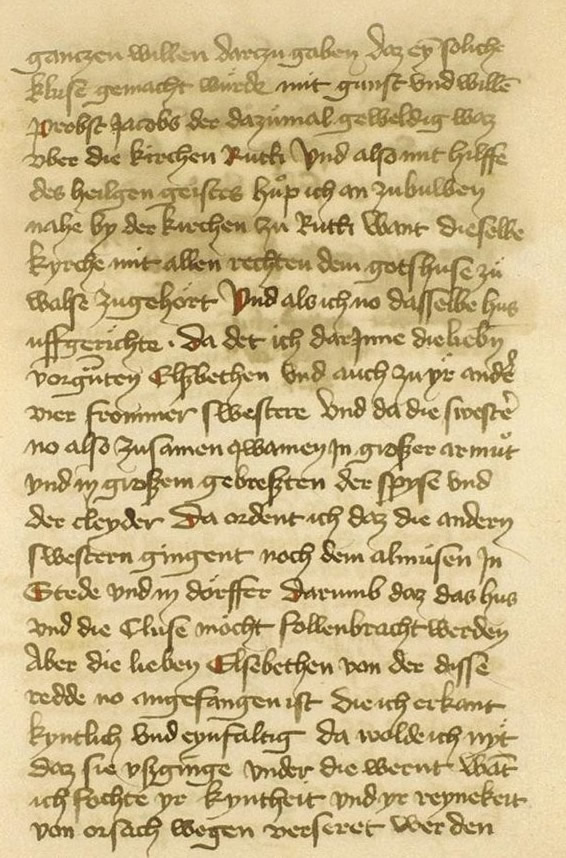 gantzen willen darzu gaben daz ey soliche
kluse gemacht wurde mit gunst vnd wille
probst Jacobs der dazumal geweldig waz
vber die kirchen Ruthi Vnd also mit hilffe
des heilgen geistes hup ich an zubuwen
nahe by der kirchen zu Ruthi Want dieselbe
kyrche mit allen rechten dem gotshuse zu
walse zugehort Vnd als ich no dasselbe hus
uffgerichte · Da det ich darJnne die liebn
vorguten Elszbethen vnd auch zu yr ander
vier frommer swestere vnd da die swester
no also zusamen qwamen Jn großer armut
vnd in großem gebreszten der spyse vnd
der cleyder Da ordent ich daz die andern
swestern gingent noch dem almusen Jn
Stede vnd in dorffer Darumb daz das hus
vnd die Cluse mocht follenbracht werden
Aber die lieben Elsebethen von der disse
redde no angefangen ist die ich erkant
kyntlich vnd eynfaltig da wolde ich nyt
daz sie vszginge vnder die wernt Want
ich fochte yr kyntheit vnd yr reynekeit
von orsach wegen verseret werden